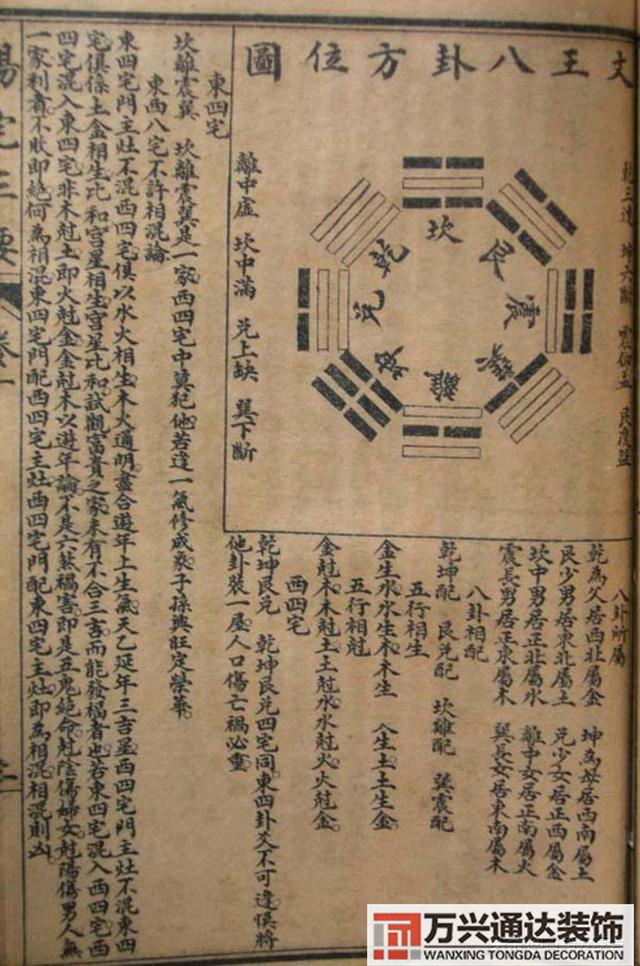 文王八卦方位圖
乾三連 坤六斷 震仰盂 艮覆盌
離中虛 坎中滿 兑上缺 巽下斷
坎
艮
震
巽
離
坤
兑
乾
八卦所屬
乾為父居西北屬金 坤為母居西南屬土
艮少男居東北屬土 兑少女居正西屬金
坎中男居正北屬水 離中女居正南屬火
震長男居正東屬木 巽長女居東南屬木
八卦相配
乾坤配 艮兑配 坎離配 巽震配
五行相生
金生水水生木木生 火生土土生金
五行相尅
金尅木木尅土土尅水水尅火火尅金
西四宅
乾坤艮兑 乾坤艮兑四宅同東四卦爻不可逢悞將
他卦裝一屋人口傷亡禍必重
東四宅
坎離震巽 坎離震巽是一家西四宅中莫犯他若逢一氣修成象子孫興旺定榮華
東西八宅不許相混論
東四宅門主灶不混西四宅俱以水火相生木火通明盡合遊年上生氣天乙延年三吉星西四宅門主灶不混東四
宅俱係土金相生比和宮星相生宮星比和試觀富貴之家未有不合三吉而能發福者也若東四宅混入西四宅西
四宅混入東四宅非木尅土即火尅金金尅木以遊年論不是六煞禍害即是五鬼絕命尅陰傷婦女尅陽傷男人無
一家利者不敗即絕何為相混東四宅門配西四宅主灶西四宅門配東四宅主灶即為相混相混則凶
陽宅三要 卷一
万兴通达装饰
WANXING TONGDA DECORATION